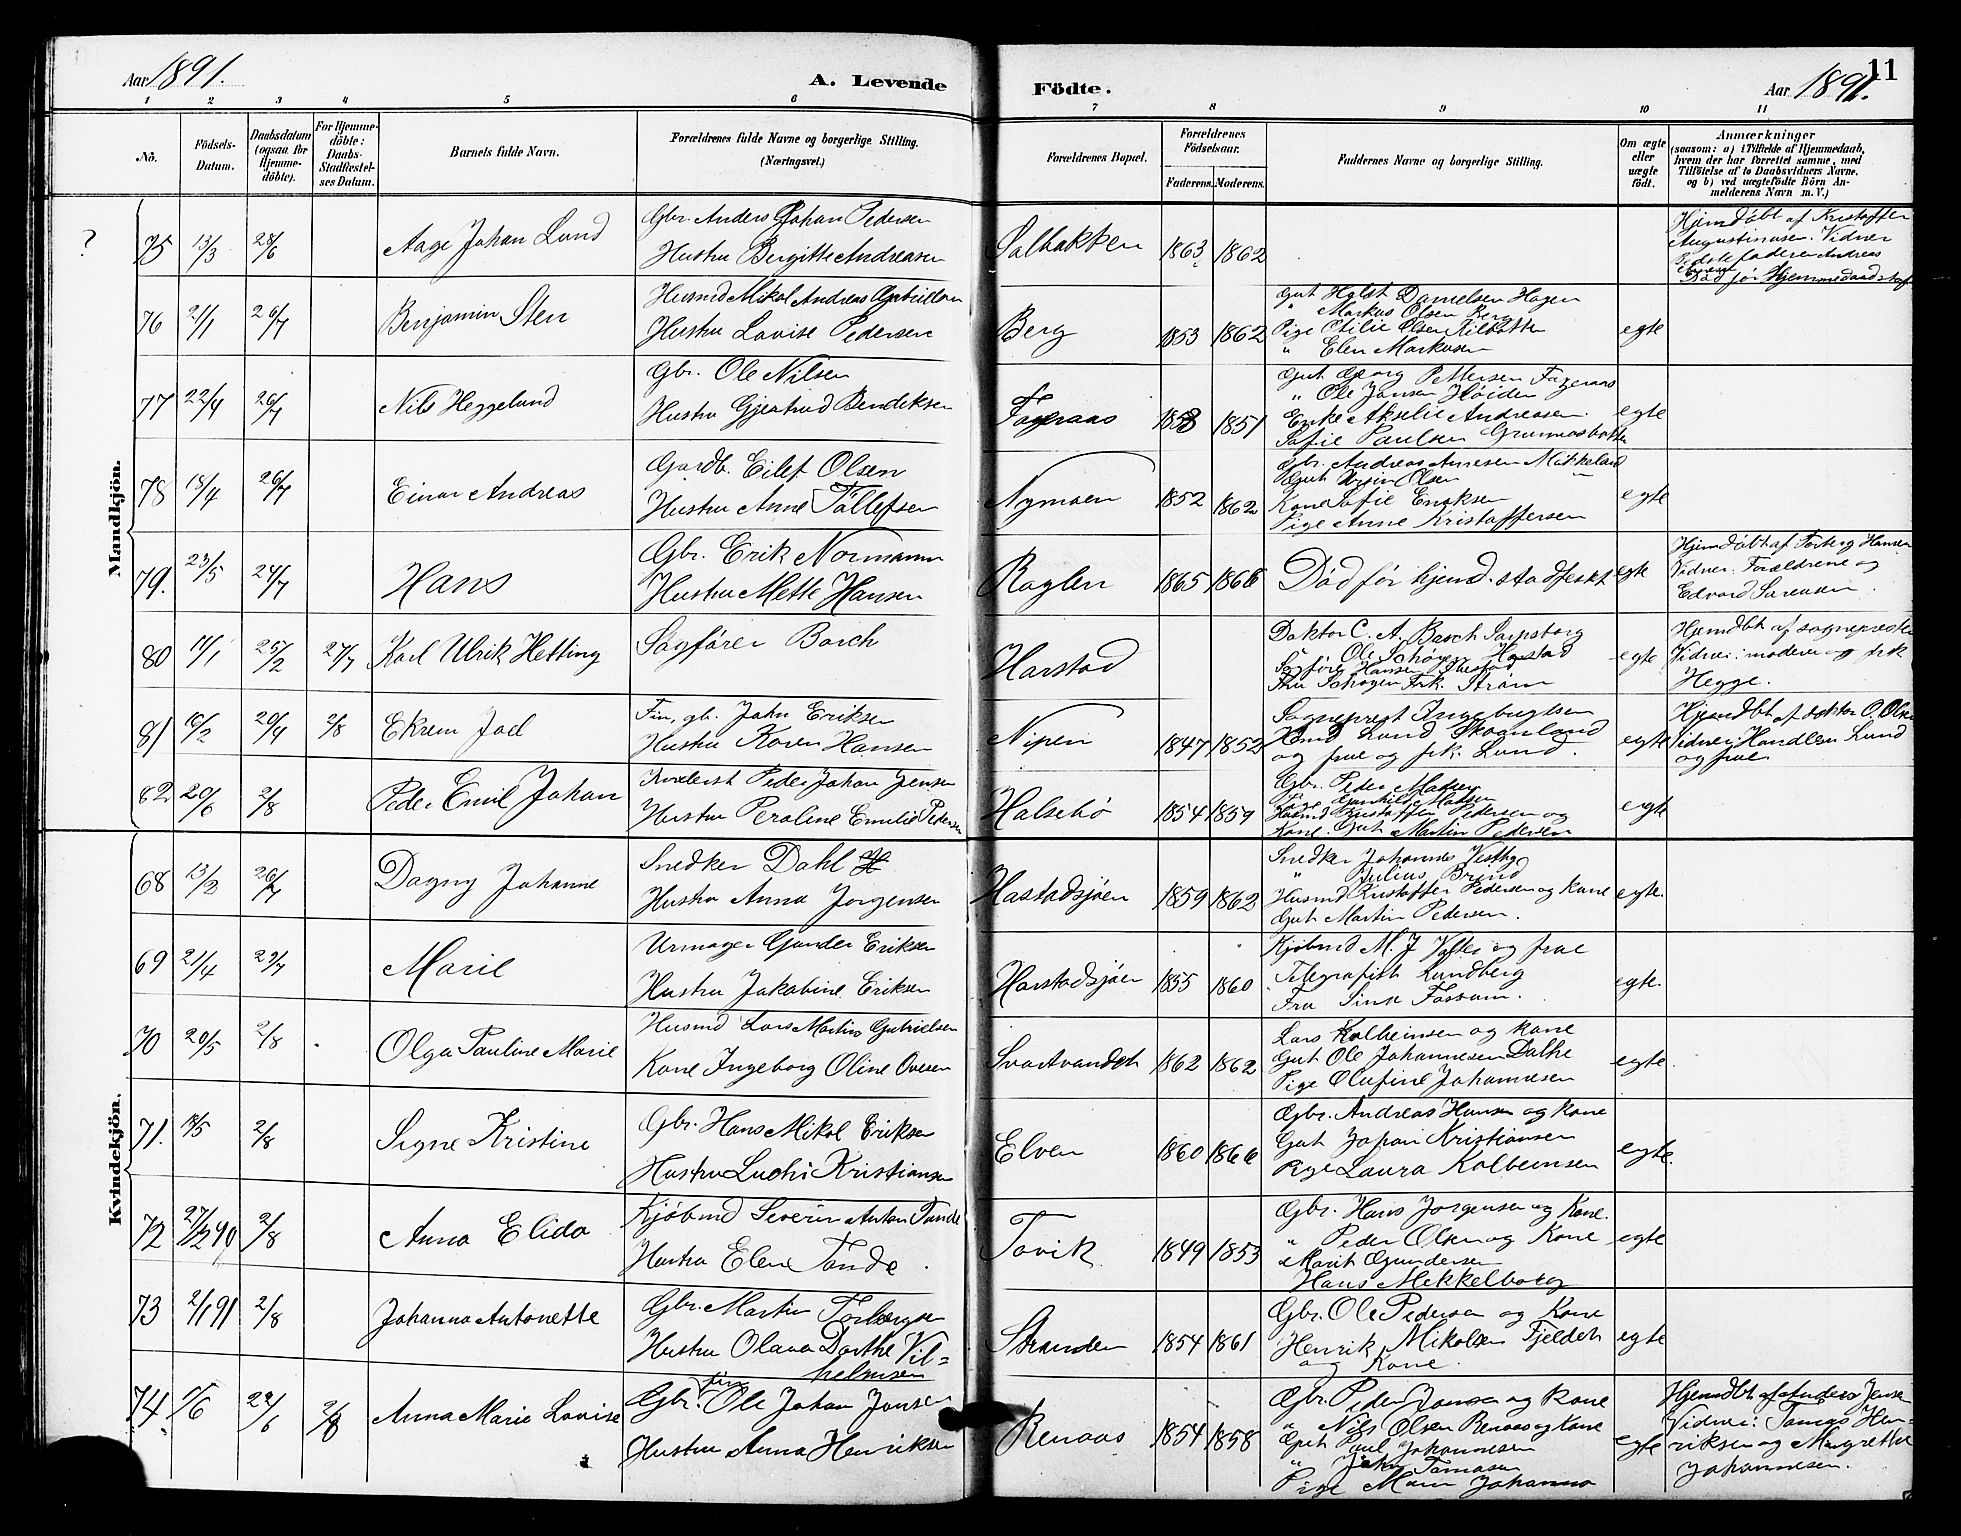 Aar 1891.
A. Levende
Födte.
Aar 1891.
11
1 2 3 4 5 6 7 8 9 10 11
No.
Födsels-Datum.
Daabsdatum (ogsaa for Hjemme-döbte).
For Hjemme-döbte: Daabs-Stadfæstel-ses Datum.
Barnets fulde Navn.
Forældrenes fulde Navne og borgerlige Stilling. (Næringsvei.)
Forældrenes Bopæl.
Forældrenes Födselsaar.
Faderens. Moderens.
Faddernes Navne og borgerlige Stilling.
Om ægte eller uægte födt.
Anmærkninger
(saasom: a) i Tilfælde af Hjemmedaab,
hvem der har forrettet samme, med
Tilföielse af to Daabsvidners Navne,
og b) ved uægtefödte Börn An-
melderens Navn m. V.)
Mandkjön.
? 75 13/3 28/6 Aage Johan Lund
Gbr. Anders Johan Pedersen
Hustru Bergitte Andreasen
Salbakken 1863 1862
Hjemdöbt af Kristoffer
Augustinusen. Vidner
faderen Andreas
Död för Hjemmedaab
76 21/1 26/7 Benjamin Sten
Husmd Mikal Andreas Gabrielsen
Hustru Lovise Pedersen
Berg 1853 1862
Gut Holst Danielsen Hagen
" Markus Olsen Berg
Pige Otilie Olsen
" Elen Markusen
egte
77 22/4 26/7 Nils Heggelund
Gbr. Ole Nilsen
Hustru Gjertrud Bendiksen
Fageraas 1858 1851
Gut Georg Pettersen Fageraas
" Ole Jansen Höiden
Enke Akselie Andreasen.
Sofie Paulsen
egte
78 18/4 26/7 Einar Andreas
Gaardb. Eilef Olsen
Hustru Anne Tollefsen
Nymoen 1852 1862
Gbr. Andreas Arnesen
Gut Olsen
Kone Sofie Eriksen
Pige Anne Kristoffersen
egte
79. 23/5 24/7 Hans
Gbr. Erik Normann
Hustru Mette Hansen
Roglen 1865 1866
Död för hjemd. stadfestet
egte
Hjemdöbt af Hansen
Vidner: Forældrene og
Edvard Sörensen.
80 11/1 25/2 27/7 Karl Ulrik Hetting
Sagförer Borch
Harstad
Doktor C. A. Borch Sarpsborg
Ole Schöyen Harstad
Sagförer Hansen Harstad
Fru Schöyen Frk. Ström
egte
Hjemdbt af sogneprest
Vidner: moderen og frk
Hegge.
81 16/2 20/4 2/8 Ekrem Joel
Fin, gb. John Eriksen
Hustru Karen Hansen
Nipen 1847 1852
Sogneprest Ingebrigtsen
Lund Skaanland
og frue og frk. Lund.
egte
Hjemdbt af doktor O. Olsen
Vidner: Handlen Lund
og frue
82 20/6 2/8 Peder Emil Johan
Peder Johan Jensen
Hustru Peraline Emilie Pedersen
Halsebö 1854 1859
Gbr. Peder Madsen
Pige Gunhild Madsen
Husmd Kristoffer Pedersen og
Kone. Gut Martin Pedersen
egte
Kvindekjön.
68 13/2 26/7 Dagny Johanne
Snedker Dahl
Hustru Anna Jörgensen
Hastadsjöen 1859 1862
Snedker Johannes Vestby
" Julius Brind
Husmd Kristoffer Pedersen og Kone
Gut Martin Pedersen.
egte.
69 21/4 29/7 Marie
Urmager Gunder Eriksen
Hustru Jakobine Eriksen
Harstadsjöen 1855 1860
Kjöbmd M. J. og frue
Telegrafist Lundberg
Fru Sina Fossum.
egte.
70 20/5 2/8 Olga Pauline Marie
Husmd Lars Martin Gabrielsen
Kone Ingeborg Oline Ovesen
Svartvandet 1862 1862
Lars Kolbeinsen og kone
Gut Ole Johannesen Dalhe
Pige Olufine Johannesen
egte.
71. 14/5 2/8 Signe Kristine
Gbr. Hans Mikal Eriksen
Hustru Kristiansen
Elven 1860 1866
Gbr. Andreas Hansen og kone
Gut Johan Kristiansen
Pige Laura Kolbeinsen
egte.
72 27/12 90 2/8 Anna Elida
Kjöbmd Severin Anton Tande
Hustru Elene Tande.
Tovik 1849 1853
Gbr. Hans Jörgensen og Kone.
" Peder Olsen og Kone
Marit Gundersen
Hans Mekkelborg
egte
73 2/1 91 2/8 Johanna Antonette
Gbr. Martin Torbergsen
Hustru Olava Dorthe Vil=
helmsen
Stranden 1854 1861
Gbr. Ole Pedersen og Kone
Henrik Mikalsen Fjeldet
og Kone.
egte
74 1/6 22/6 2/8 Anna Marie Lovise
Gbr. fin Ole Johan Jonsen
Hustru Anna Henriksen
Renaas 1854 1858
Gbr. Peder Jonsen og kone
" Nils Olsen Renaas og Kone
Gut Paul Johannesen
" John Tomasen
Pige Maren Johanna
egte
Hjemdbt af Anders Jensen
Vidner: Tomas Hen-
riksen og Magrethe
Johannesen.